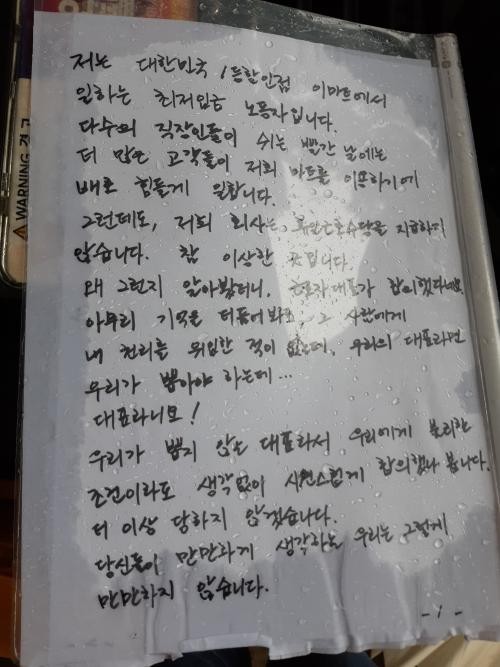 WARNING 경고
저는 대한민국 1등할인점 이마트에서
일하는 최저임금 노동자입니다.
다수의 직장인들이 쉬는 빨간 날에는
더 많은 고객들이 저희 마트를 이용하기에
배로 힘들게 일합니다.
그런데도, 저희 회사는 휴일근로수당을 지급하지
않습니다. 참 이상한 곳입니다.
왜 그런지 알아봤더니, 근로자대표가 합의했다네요.
아무리 기억을 더듬어봐도, 그 사람에게
내 권리를 위임한 적이 없는데, 우리의 대표라면
우리가 뽑아야 하는데...
대표라니요!
우리가 뽑지 않은 대표라서 우리에게 불리한
조건이라도 생각없이 시원스럽게 합의했나 봅니다.
더 이상 당하지 않겠습니다.
당신들이 만만하게 생각하는 우리는 그렇게
만만하지 않습니다.
-1-